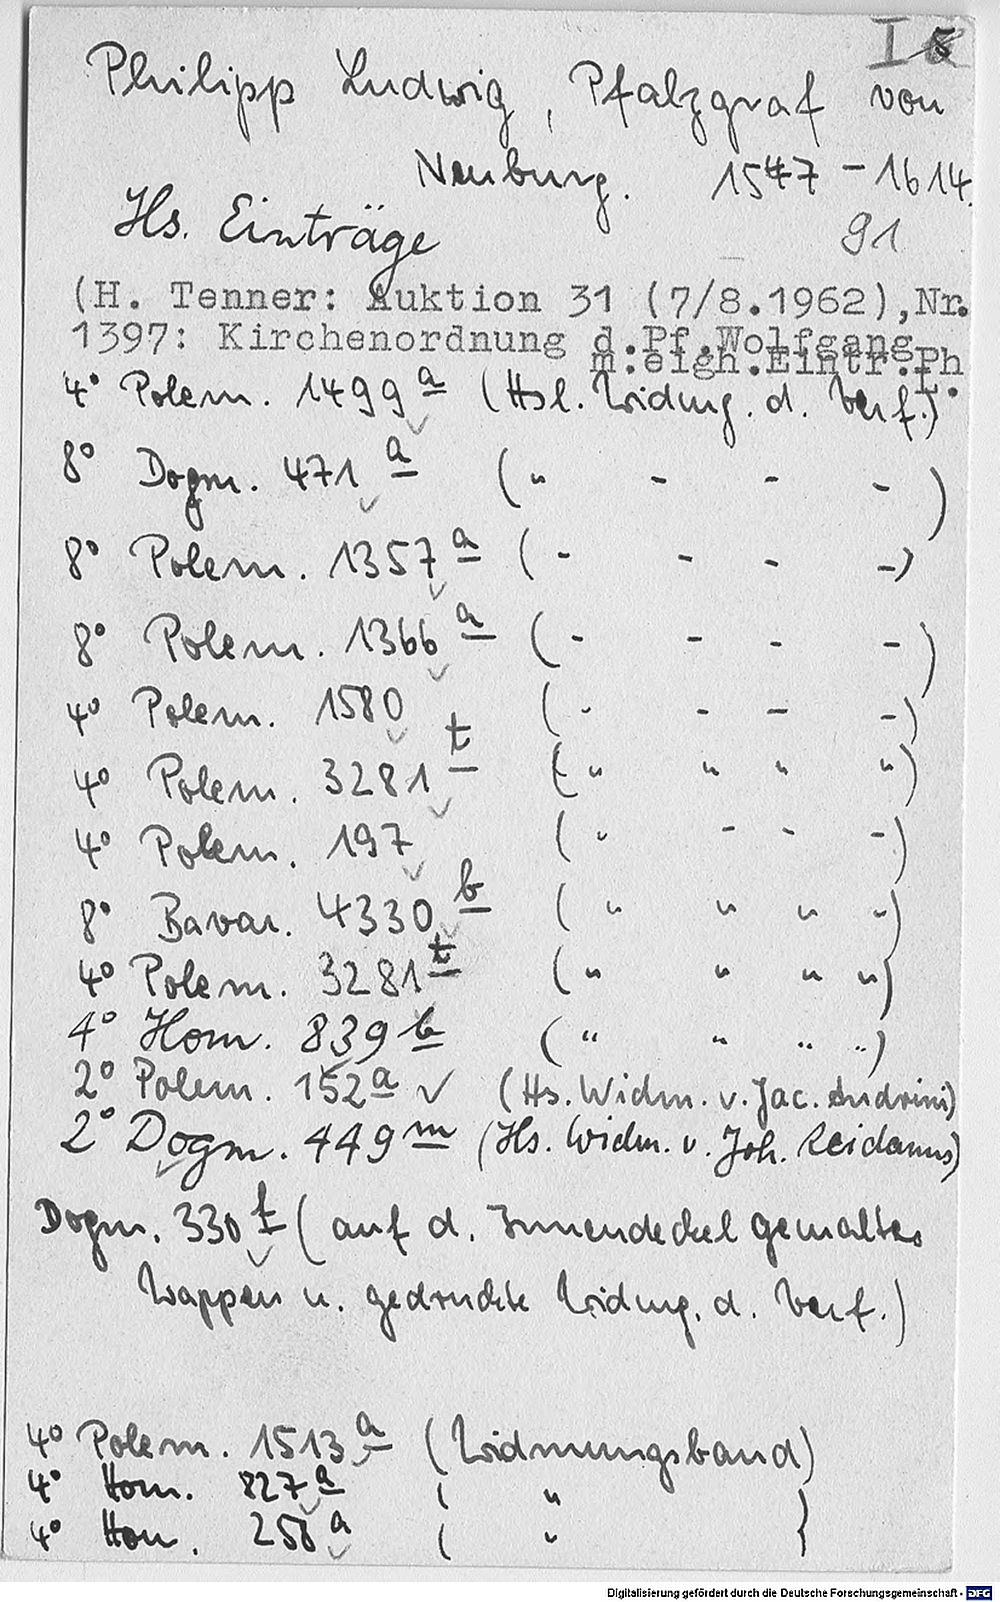 I 5
Philipp Ludwig, Pfalzgraf von
Neuburg. 1547 - 1614.
Hs. Einträge 91
(H. Tenner: Auktion 31 (7/8.1962), Nr.
1397: Kirchenordnung d.Pf.Wolfgang
m.eigh.Eintr.Ph
L.
4° Polem. 1499 a (Hsl. Widmg. d. Verf.)
8° Dogm. 471 a (" - - -)
8° Polem. 1357 a (- - - -)
8° Polem. 1366 a (- - - -)
4° Polem. 1580 (- - - -)
4° Polem. 3281 t (" " " ")
4° Polem. 197 (" - - -)
8° Bavar. 4330 b (" " " ")
4° Polem. 3281 t (" " " ")
4° Hom. 839 b (" " " ")
2° Polem. 152 a ✓ (Hs. Widm. v. Jac. Andrini)
2° Dogm. 449 m (Hs. Widm. v. Joh. Reidanus)
Dogm. 330 f (auf d. Innendeckel gemaltes
Wappen u. gedruckte Widmg. d. Verf.)
4° Polem. 1513 a (Widmungsband)
4° Hom. 827 a ( "
4° Hom. 258 a ( " )
Digitalisierung gefördert durch die Deutsche Forschungsgemeinschaft - DFG